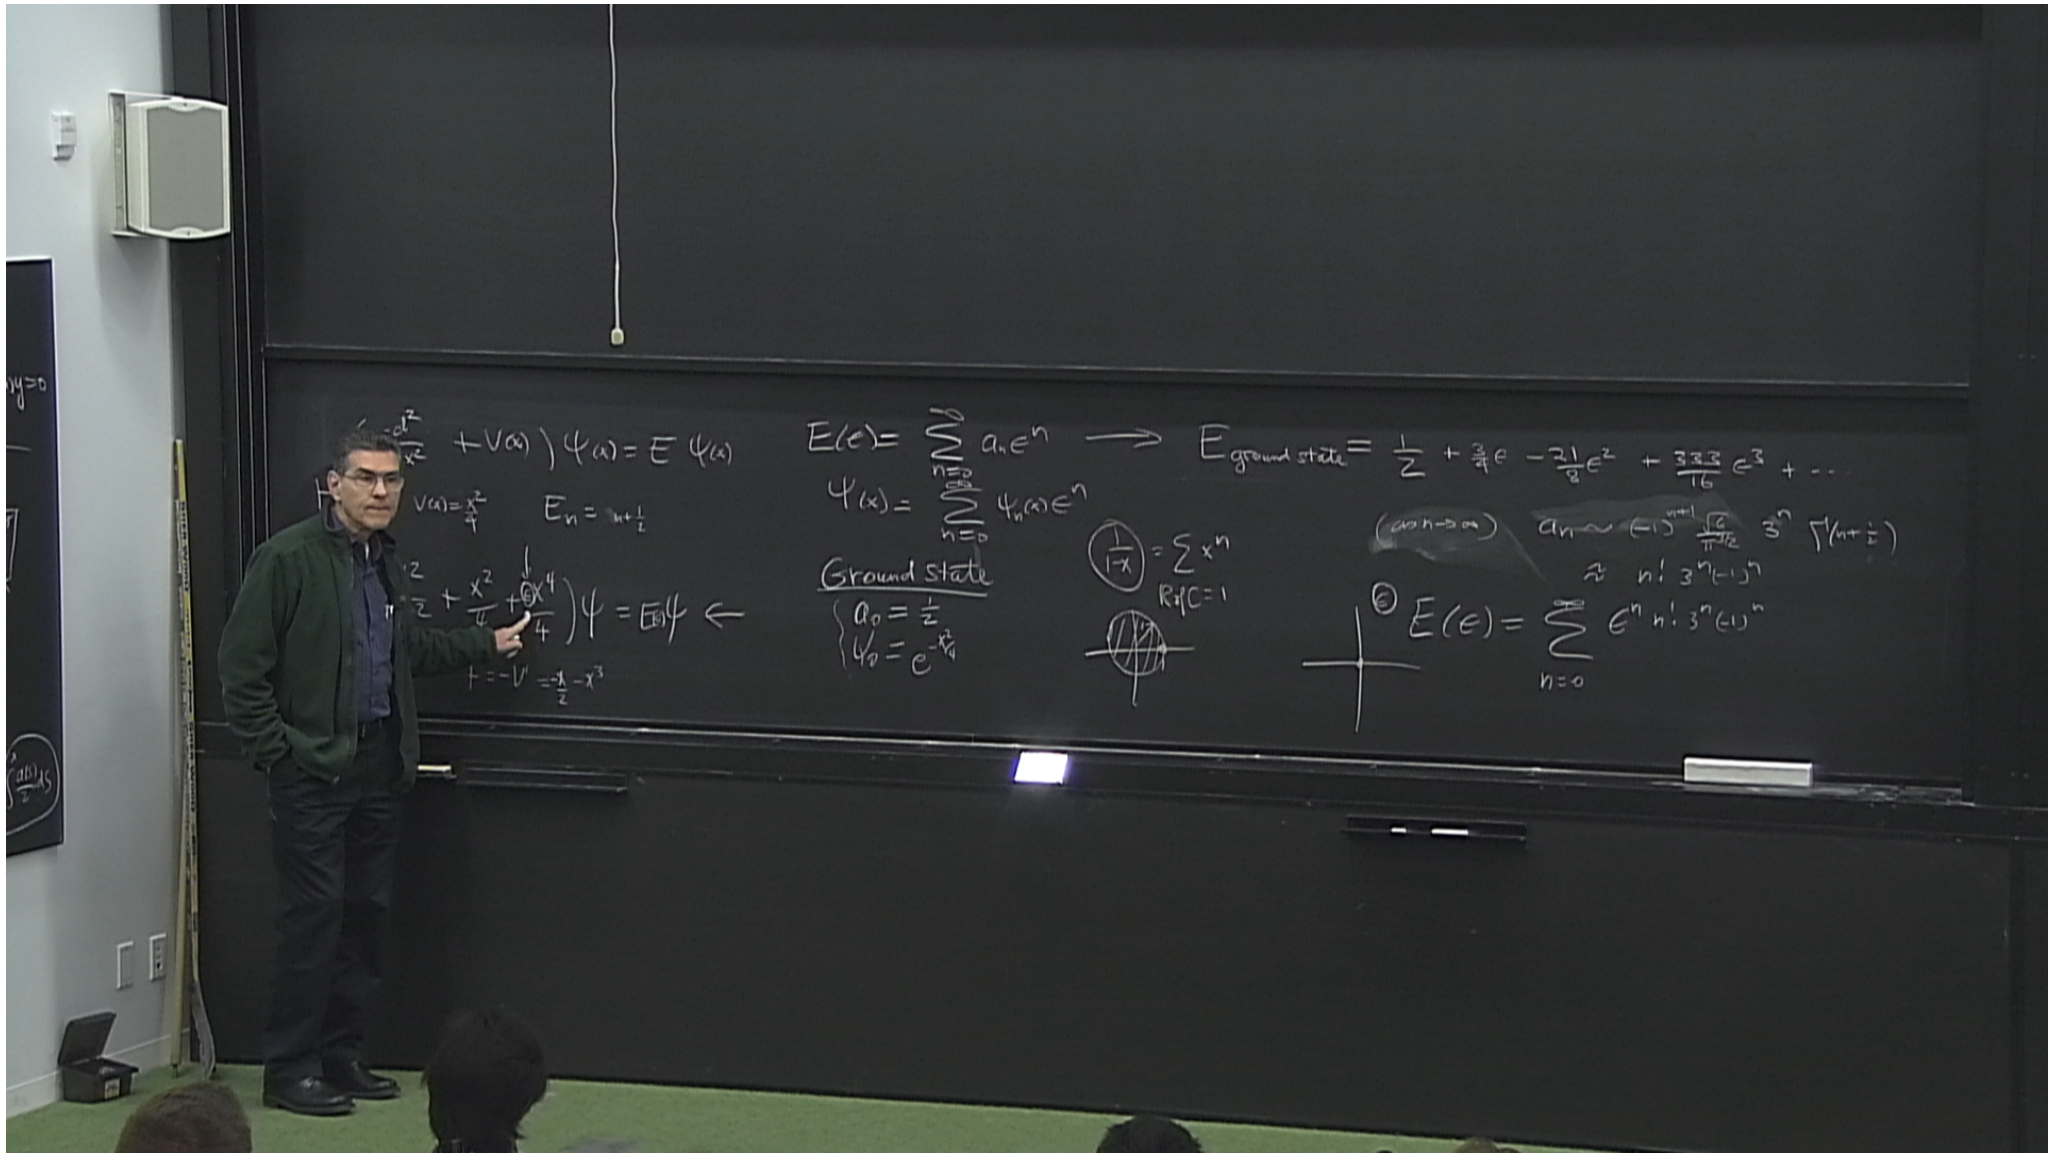 )y=0
-d²/x² + V(x) ) ψ(x) = E ψ(x)
V(x) = x²/4   E_n = n+1/2
²/2 + x²/4 + ϵx⁴/4 ) ψ = E(ϵ)ψ ←
F = -V' = -x/2 - x³
E(ϵ) = ∑_{n=0}^{∞} a_n ϵⁿ ⟶ E_{ground state} = 1/2 + 3/4 ϵ - 21/8 ϵ² + 333/16 ϵ³ + ...
ψ(x) = ∑_{n=0}^{∞} ψ_n(x) ϵⁿ
Ground state
a₀ = 1/2
ψ₀ = e^{-x²/4}
1/(1-x) = ∑ xⁿ
R of C = 1
(as n→∞)   a_n ~ (-1)^{n+1} √6/π^{3/2} 3ⁿ Γ(n+1/2)
≈ n! 3ⁿ (-1)ⁿ
ϵ
E(ϵ) = ∑_{n=0}^{∞} ϵⁿ n! 3ⁿ (-1)ⁿ
∫ a(s)/2 ds